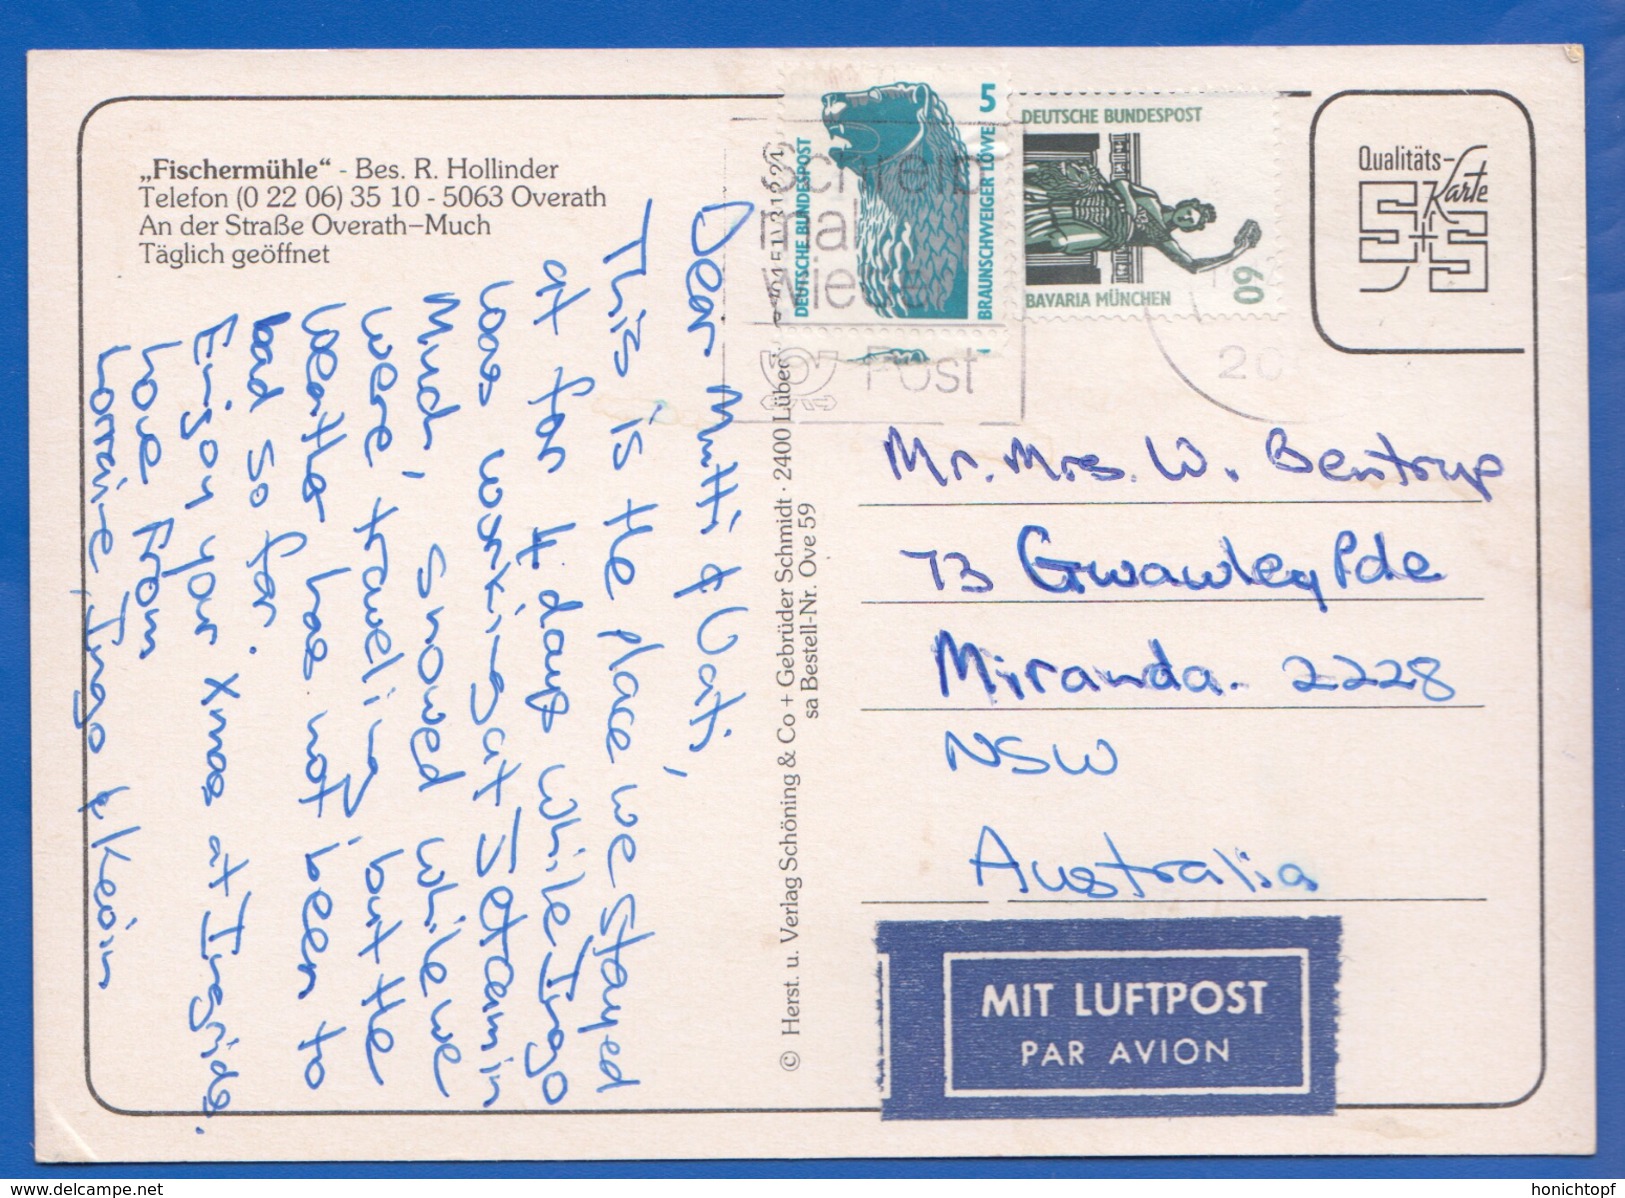 „Fischermühle“ - Bes. R. Hollinder
Telefon (0 22 06) 35 10 - 5063 Overath
An der Straße Overath–Much
Täglich geöffnet
Dear Mutti & Vati,
This is the place we stayed
at for 4 days while Ingo
was working at Jetcam in
Much, snowed while we
were traveling but the
weather has not been to
bad so far.
Enjoy your Xmas at Ingrids.
Love From
Lorraine, Ingo & Kevin
© Herst. u. Verlag Schöning & Co + Gebrüder Schmidt · 2400 Lübeck
sa Bestell-Nr. Ove 59
DEUTSCHE BUNDESPOST
5
BRAUNSCHWEIGER LÖWE
DEUTSCHE BUNDESPOST
60
BAVARIA MÜNCHEN
Schreib
mal
wieder
Post
20
Qualitäts-
Karte
S+S
Mr. Mrs. W. Bentrup
73 Gwawley Pde
Miranda. 2228
NSW
Australia
MIT LUFTPOST
PAR AVION
www.delcampe.net
honichtopf